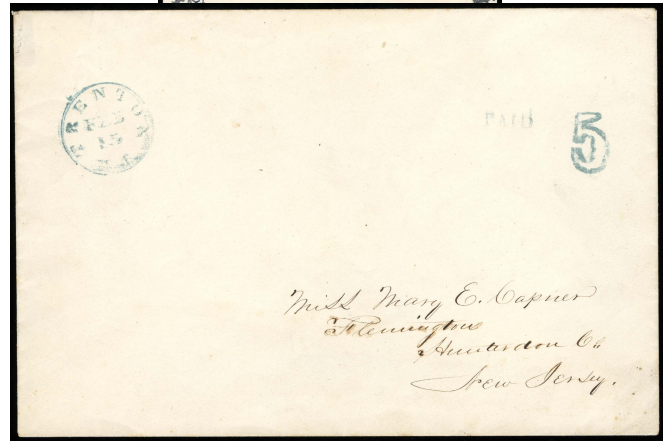 TRENTON
FEB
15
N J
PAID
5
Miss Mary E. Capner
Flemington
Hunterdon Co.
New Jersey.